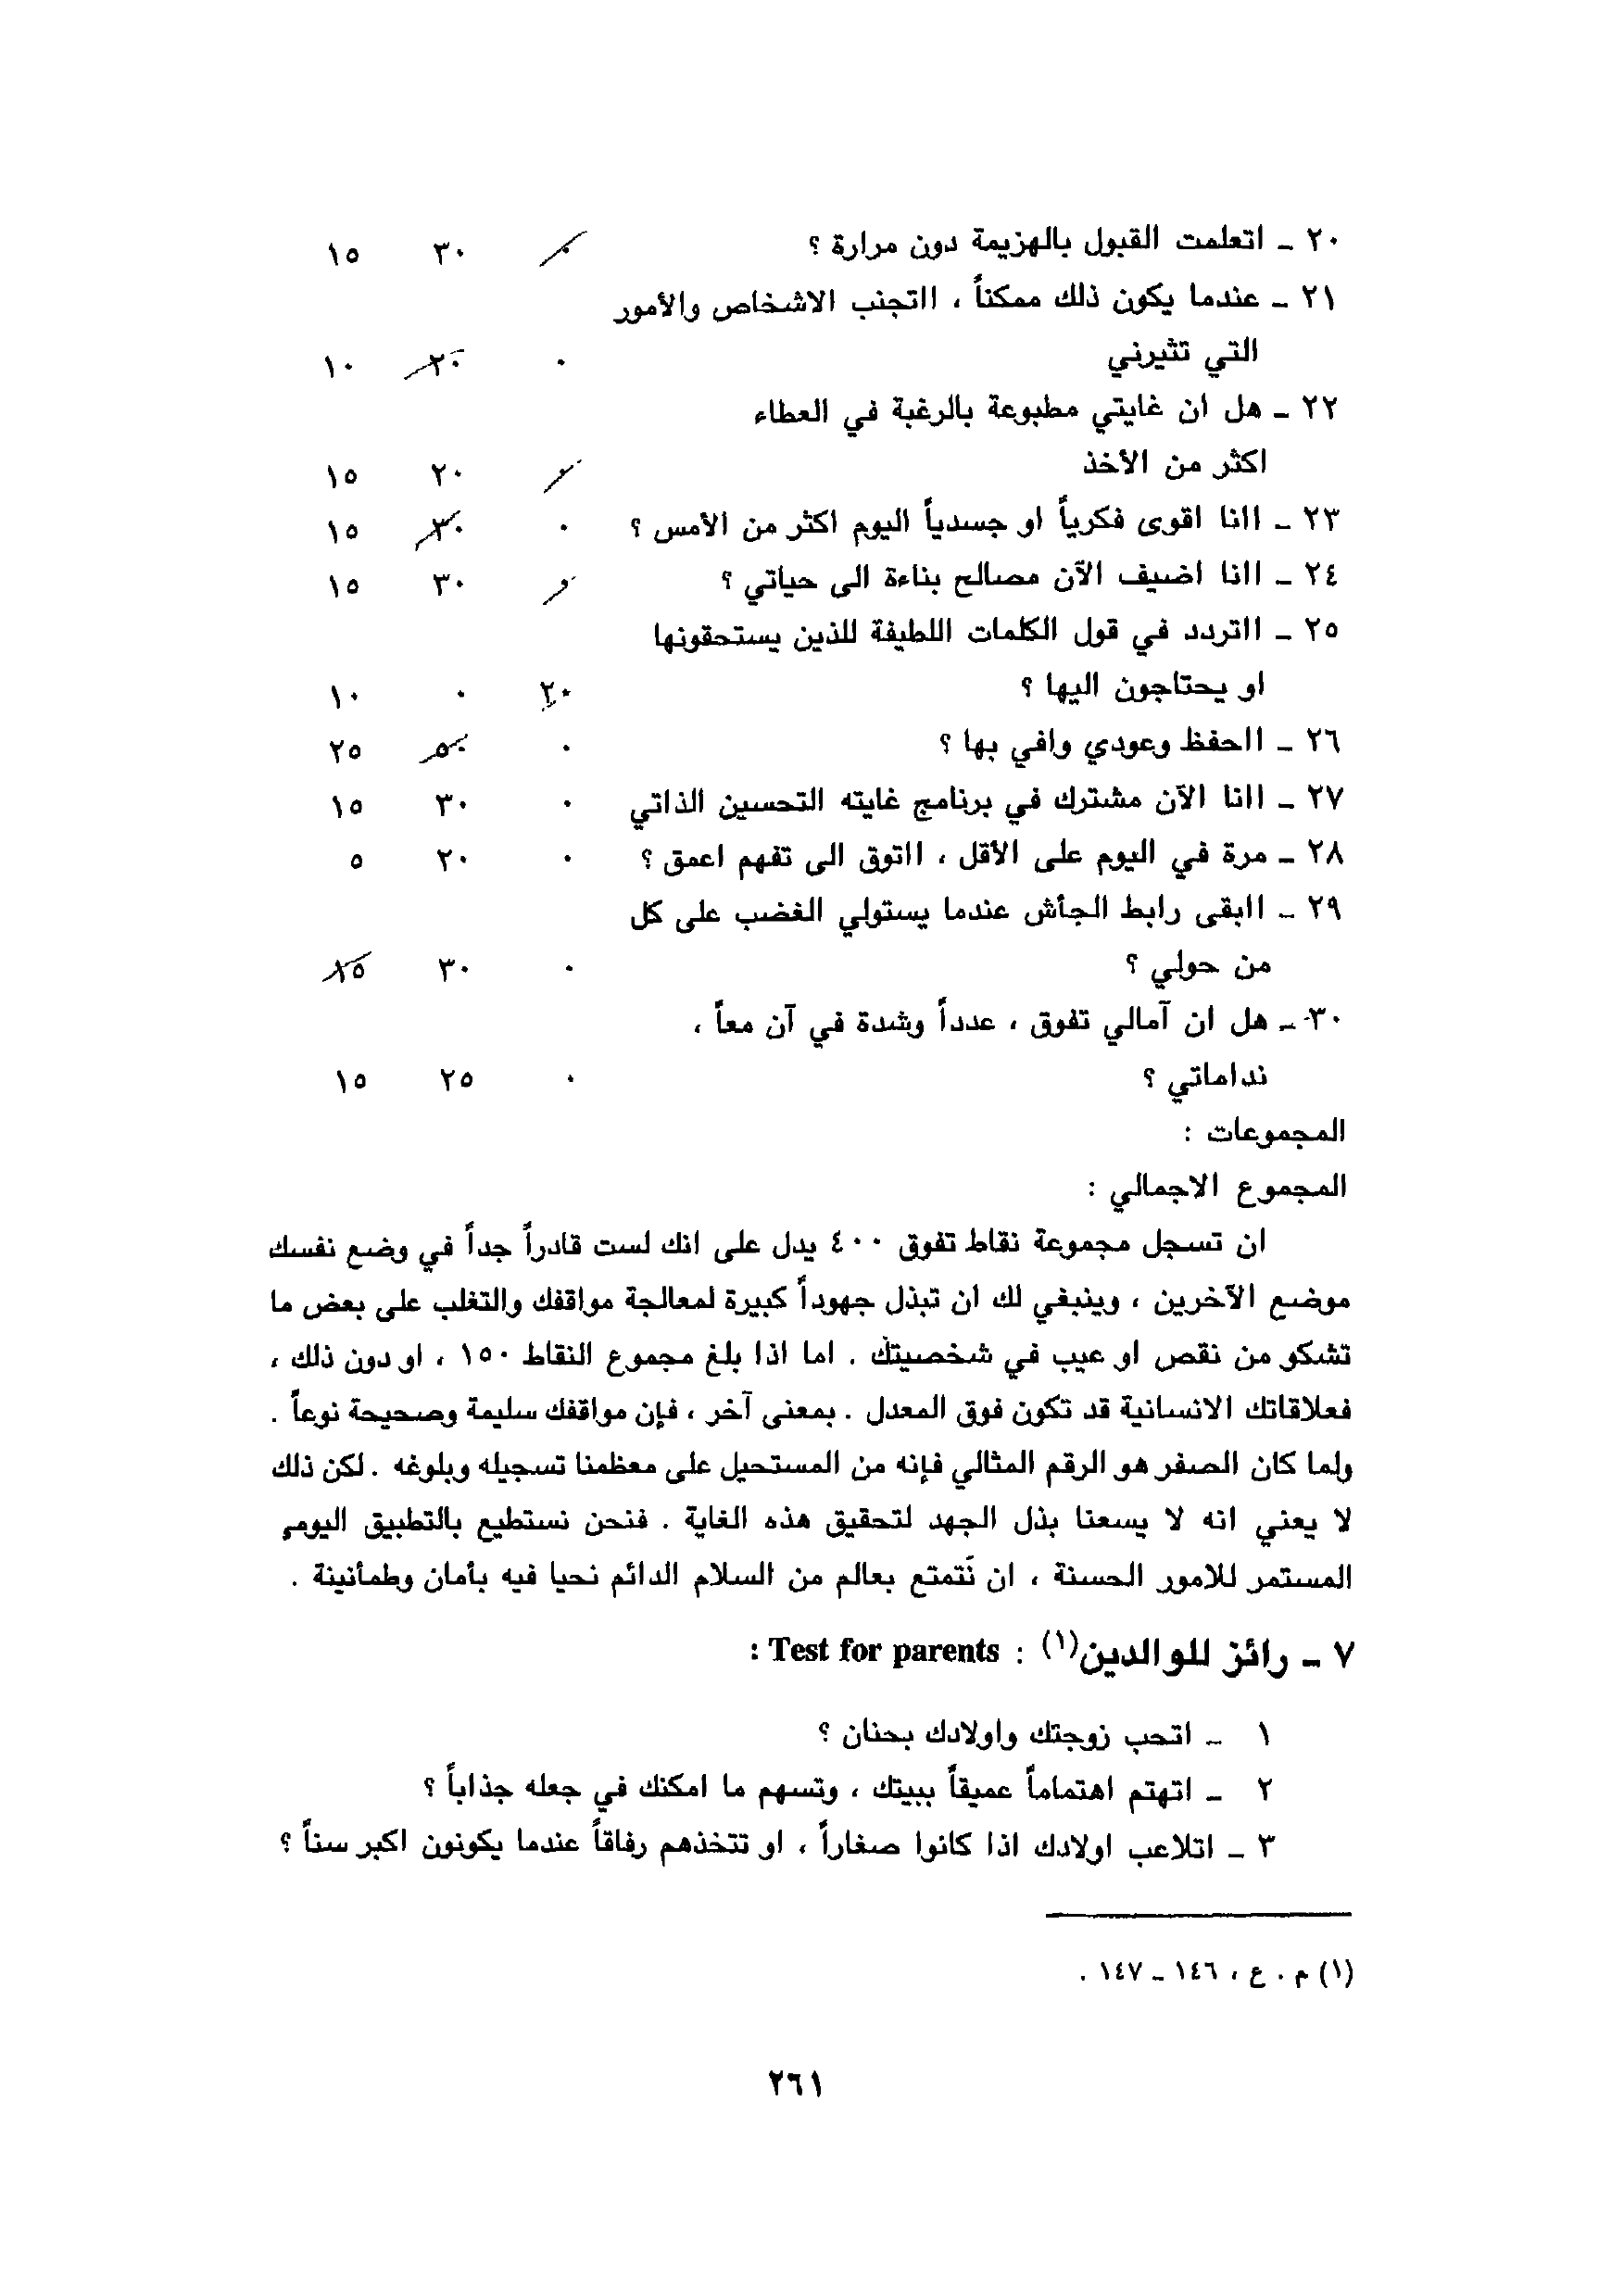 ٢٠ ـ اتعلمت القبول بالهزيمة دون مرارة ؟ ٠ ٣٠ ١٥
٢١ ـ عندما يكون ذلك ممكناً ، ااتجنب الاشخاص والأمور
التي تثيرني ٠ ٢٠ ١٠
٢٢ ـ هل ان غايتي مطبوعة بالرغبة في العطاء
اكثر من الأخذ ٠ ٢٠ ١٥
٢٣ ـ اانا اقوى فكرياً او جسدياً اليوم اكثر من الأمس ؟ ٠ ٣٠ ١٥
٢٤ ـ اانا اضيف الآن مصالح بناءة الى حياتي ؟ ٠ ٣٠ ١٥
٢٥ ـ ااتردد في قول الكلمات اللطيفة للذين يستحقونها
او يحتاجون اليها ؟ ٢٠ ٠ ١٠
٢٦ ـ ااحفظ وعودي وافي بها ؟ ٠ ٥٠ ٢٥
٢٧ ـ اانا الآن مشترك في برنامج غايته التحسين الذاتي ٠ ٣٠ ١٥
٢٨ ـ مرة في اليوم على الأقل ، ااتوق الى تفهم اعمق ؟ ٠ ٢٠ ٥
٢٩ ـ اابقى رابط الجأش عندما يستولي الغضب على كل
من حولي ؟ ٠ ٣٠ ١٥
٣٠ ـ هل ان آمالي تفوق ، عدداً وشدة في آن معاً ،
نداماتي ؟ ٠ ٢٥ ١٥
المجموعات :
المجموع الاجمالي :
ان تسجل مجموعة نقاط تفوق ٤٠٠ يدل على انك لست قادراً جداً في وضع نفسك
موضع الآخرين ، وينبغي لك ان تبذل جهوداً كبيرة لمعالجة مواقفك والتغلب على بعض ما
تشكو من نقص او عيب في شخصيتك . اما اذا بلغ مجموع النقاط ١٥٠ ، او دون ذلك ،
فعلاقاتك الانسانية قد تكون فوق المعدل . بمعنى آخر ، فإن مواقفك سليمة وصحيحة نوعاً .
ولما كان الصفر هو الرقم المثالي فإنه من المستحيل على معظمنا تسجيله وبلوغه . لكن ذلك
لا يعني انه لا يسعنا بذل الجهد لتحقيق هذه الغاية . فنحن نستطيع بالتطبيق اليومي
المستمر للامور الحسنة ، ان نَتمتع بعالم من السلام الدائم نحيا فيه بأمان وطمأنينة .
٧ ـ رائز للوالدين(١) : Test for parents :
١ ـ اتحب زوجتك واولادك بحنان ؟
٢ ـ اتهتم اهتماماً عميقاً ببيتك ، وتسهم ما امكنك في جعله جذاباً ؟
٣ ـ اتلاعب اولادك اذا كانوا صغاراً ، او تتخذهم رفاقاً عندما يكونون اكبر سناً ؟
(١) م . ع ، ١٤٦ ـ ١٤٧ .
٢٦١